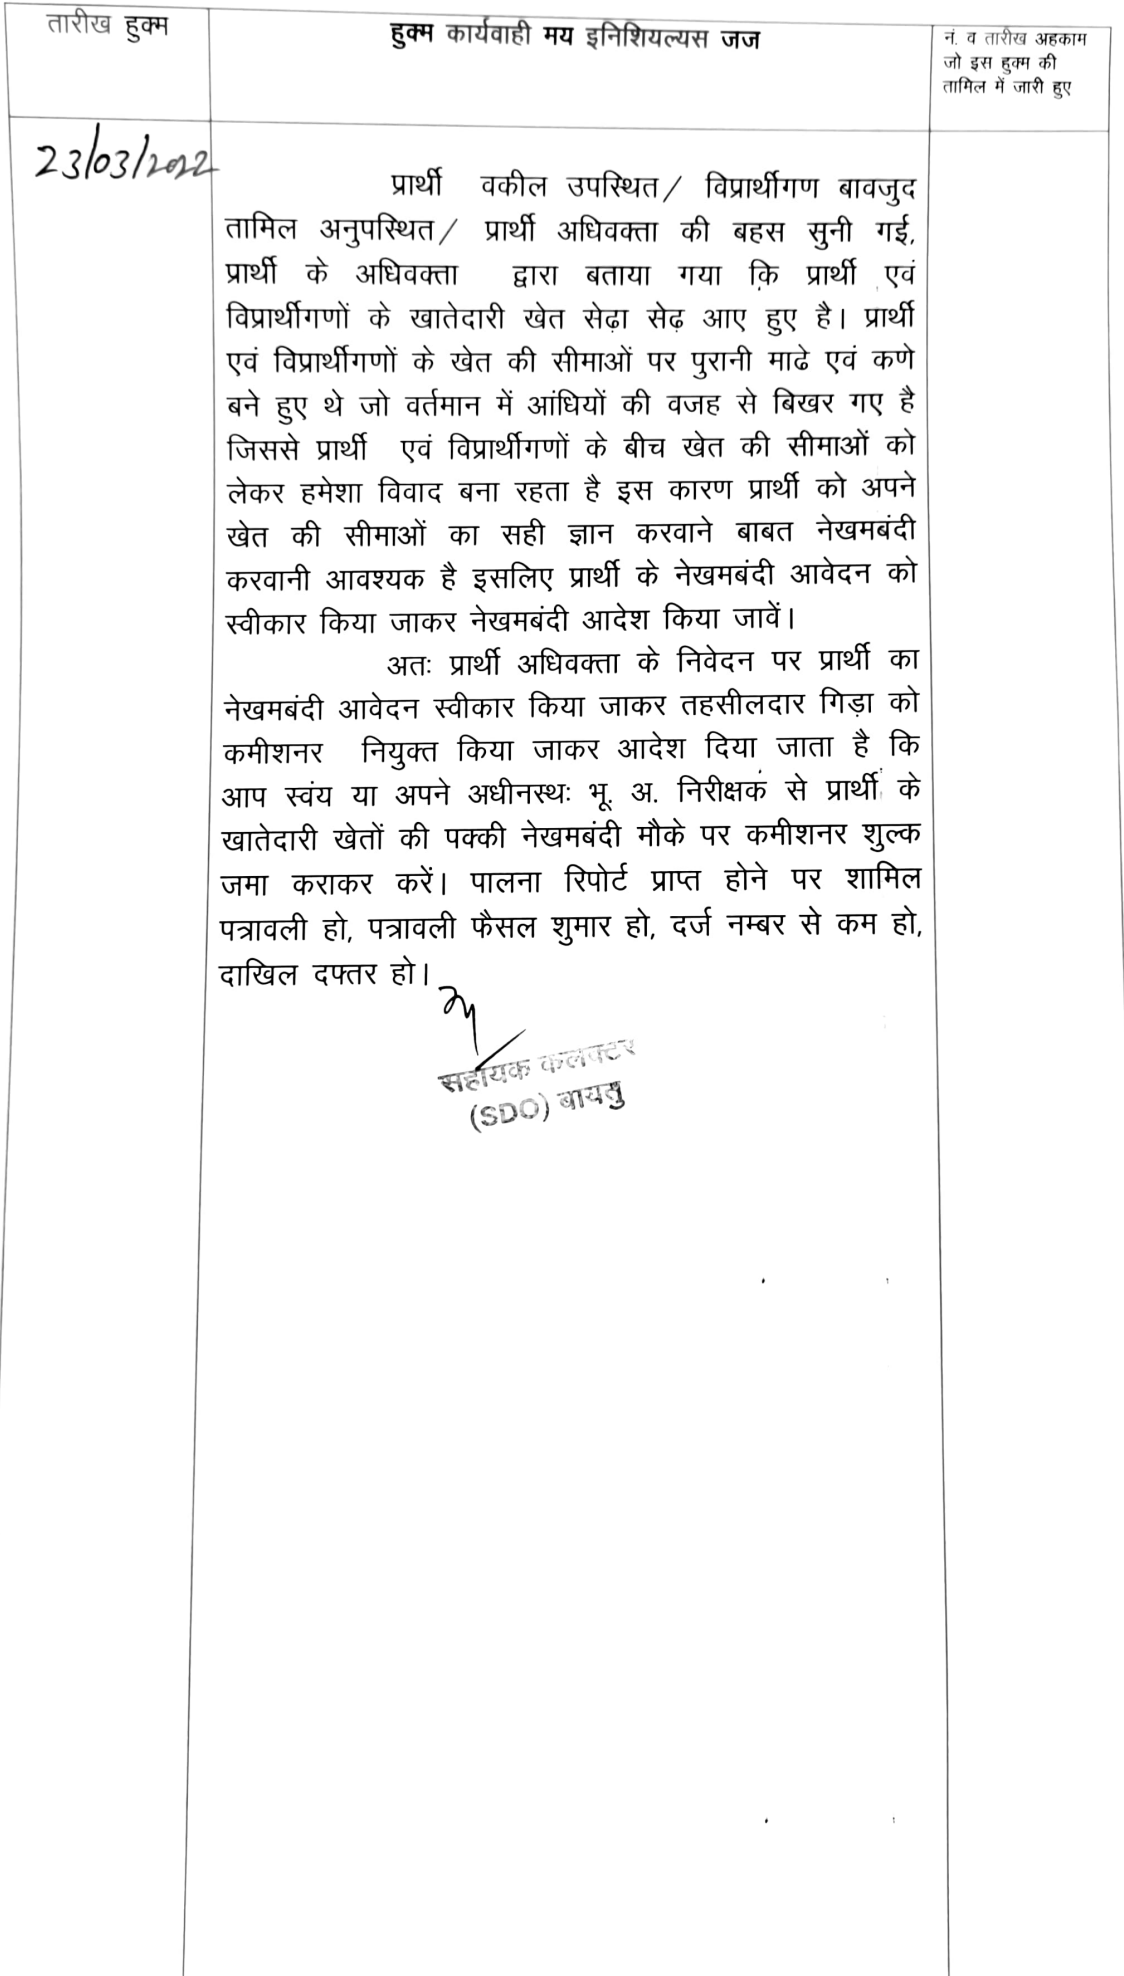 तारीख हुक्म
हुक्म कार्यवाही मय इनिशियल्यस जज
नं. व तारीख अहकाम
जो इस हुक्म की
तामिल में जारी हुए
23/03/2022
प्रार्थी वकील उपस्थित/ विप्रार्थीगण बावजुद
तामिल अनुपस्थित/ प्रार्थी अधिवक्ता की बहस सुनी गई,
प्रार्थी के अधिवक्ता द्वारा बताया गया कि प्रार्थी एवं
विप्रार्थीगणों के खातेदारी खेत सेढ़ा सेढ़ आए हुए है। प्रार्थी
एवं विप्रार्थीगणों के खेत की सीमाओं पर पुरानी माढे एवं कणे
बने हुए थे जो वर्तमान में आंधियों की वजह से बिखर गए है
जिससे प्रार्थी एवं विप्रार्थीगणों के बीच खेत की सीमाओं को
लेकर हमेशा विवाद बना रहता है इस कारण प्रार्थी को अपने
खेत की सीमाओं का सही ज्ञान करवाने बाबत नेखमबंदी
करवानी आवश्यक है इसलिए प्रार्थी के नेखमबंदी आवेदन को
स्वीकार किया जाकर नेखमबंदी आदेश किया जावें।
अतः प्रार्थी अधिवक्ता के निवेदन पर प्रार्थी का
नेखमबंदी आवेदन स्वीकार किया जाकर तहसीलदार गिड़ा को
कमीशनर नियुक्त किया जाकर आदेश दिया जाता है कि
आप स्वंय या अपने अधीनस्थः भू. अ. निरीक्षक से प्रार्थी के
खातेदारी खेतों की पक्की नेखमबंदी मौके पर कमीशनर शुल्क
जमा कराकर करें। पालना रिपोर्ट प्राप्त होने पर शामिल
पत्रावली हो, पत्रावली फैसल शुमार हो, दर्ज नम्बर से कम हो,
दाखिल दफ्तर हो।
सहायक कलक्टर
(SDO) बायतु